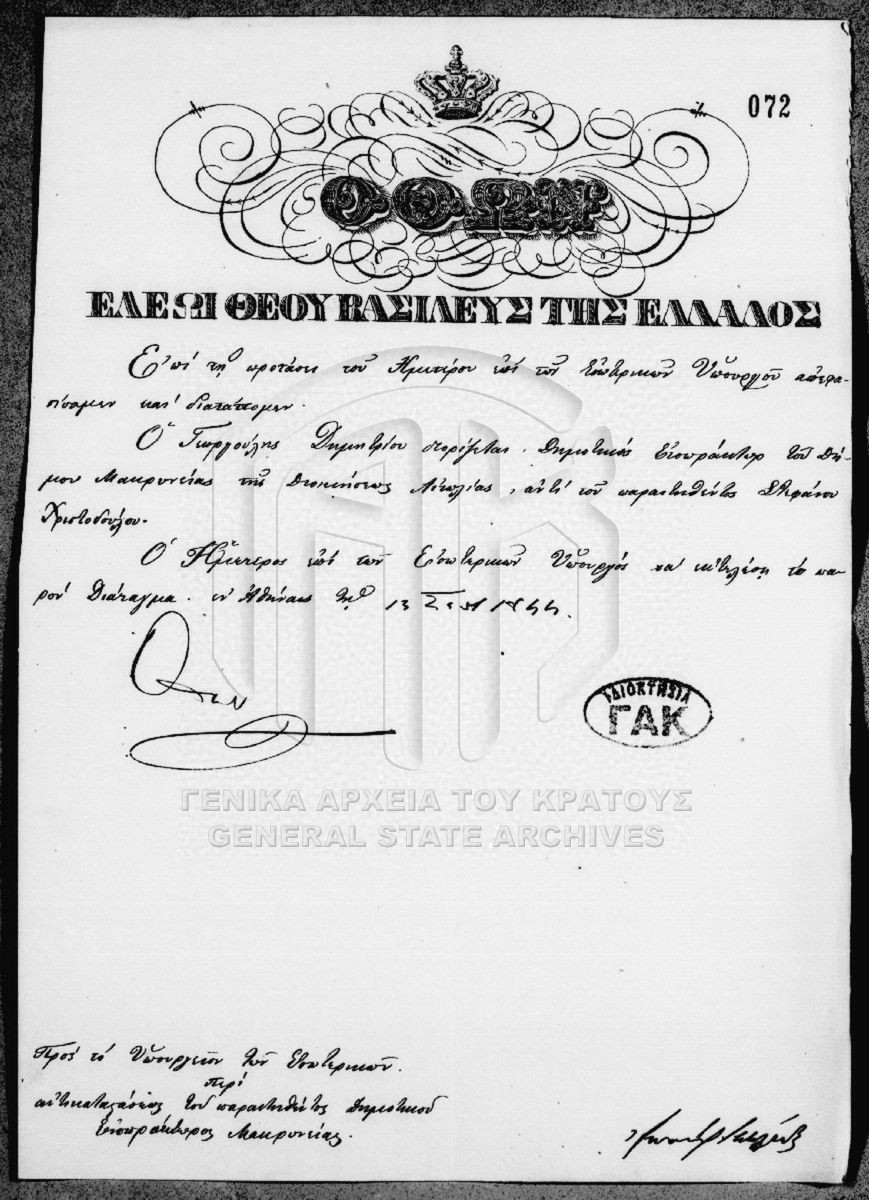 072
ΟΘΩΝ
ΕΛΕΩΙ ΘΕΟΥ ΒΑΣΙΛΕΥΣ ΤΗΣ ΕΛΛΑΔΟΣ
Ἐπὶ τῇ προτάσει τοῦ Ἡμετέρου ἐπὶ τῶν Ἐσωτερικῶν Ὑπουργοῦ ἀπεφα-
σίσαμεν καὶ διατάττομεν.
Ὁ Γεωργούλης Δημητρίου διορίζεται Δημοτικὸς Εἰσπράκτωρ τοῦ Δή-
μου Μακρυνείας τῆς Διοικήσεως Αἰτωλίας, ἀντὶ τοῦ παραιτηθέντος Στεφάνου
Χριστοδούλου.
Ὁ Ἡμέτερος ἐπὶ τῶν Ἐσωτερικῶν Ὑπουργὸς νὰ ἐκτελέσῃ τὸ πα-
ρὸν Διάταγμα. ἐν Ἀθήναις τῇ 13 Σεπ 1844
Όθων
ΙΔΙΟΚΤΗΣΙΑ
ΓΑΚ
ΓΕΝΙΚΑ ΑΡΧΕΙΑ ΤΟΥ ΚΡΑΤΟΥΣ
GENERAL STATE ARCHIVES
Πρὸς τὸ Ὑπουργεῖον τῶν Ἐσωτερικῶν.
περὶ
ἀντικαταστάσεως τοῦ παραιτηθέντος Δημοτικοῦ
Εἰσπράκτορος Μακρυνείας.